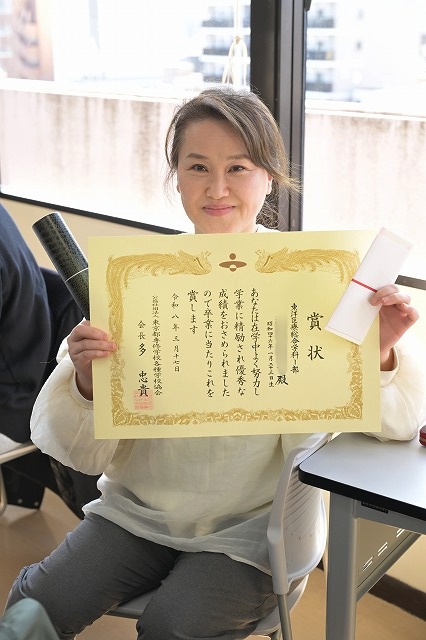 賞状
東洋医療総合学科Ⅰ部
昭和四十六年一月二十三日生
殿
あなたは在学中よく努力し
学業に精励され優秀な
成績をおさめられました
ので卒業に当たりこれを
賞します
令和八年三月十七日
公益社団法人東京都専修学校各種学校協会
会長 多忠貴